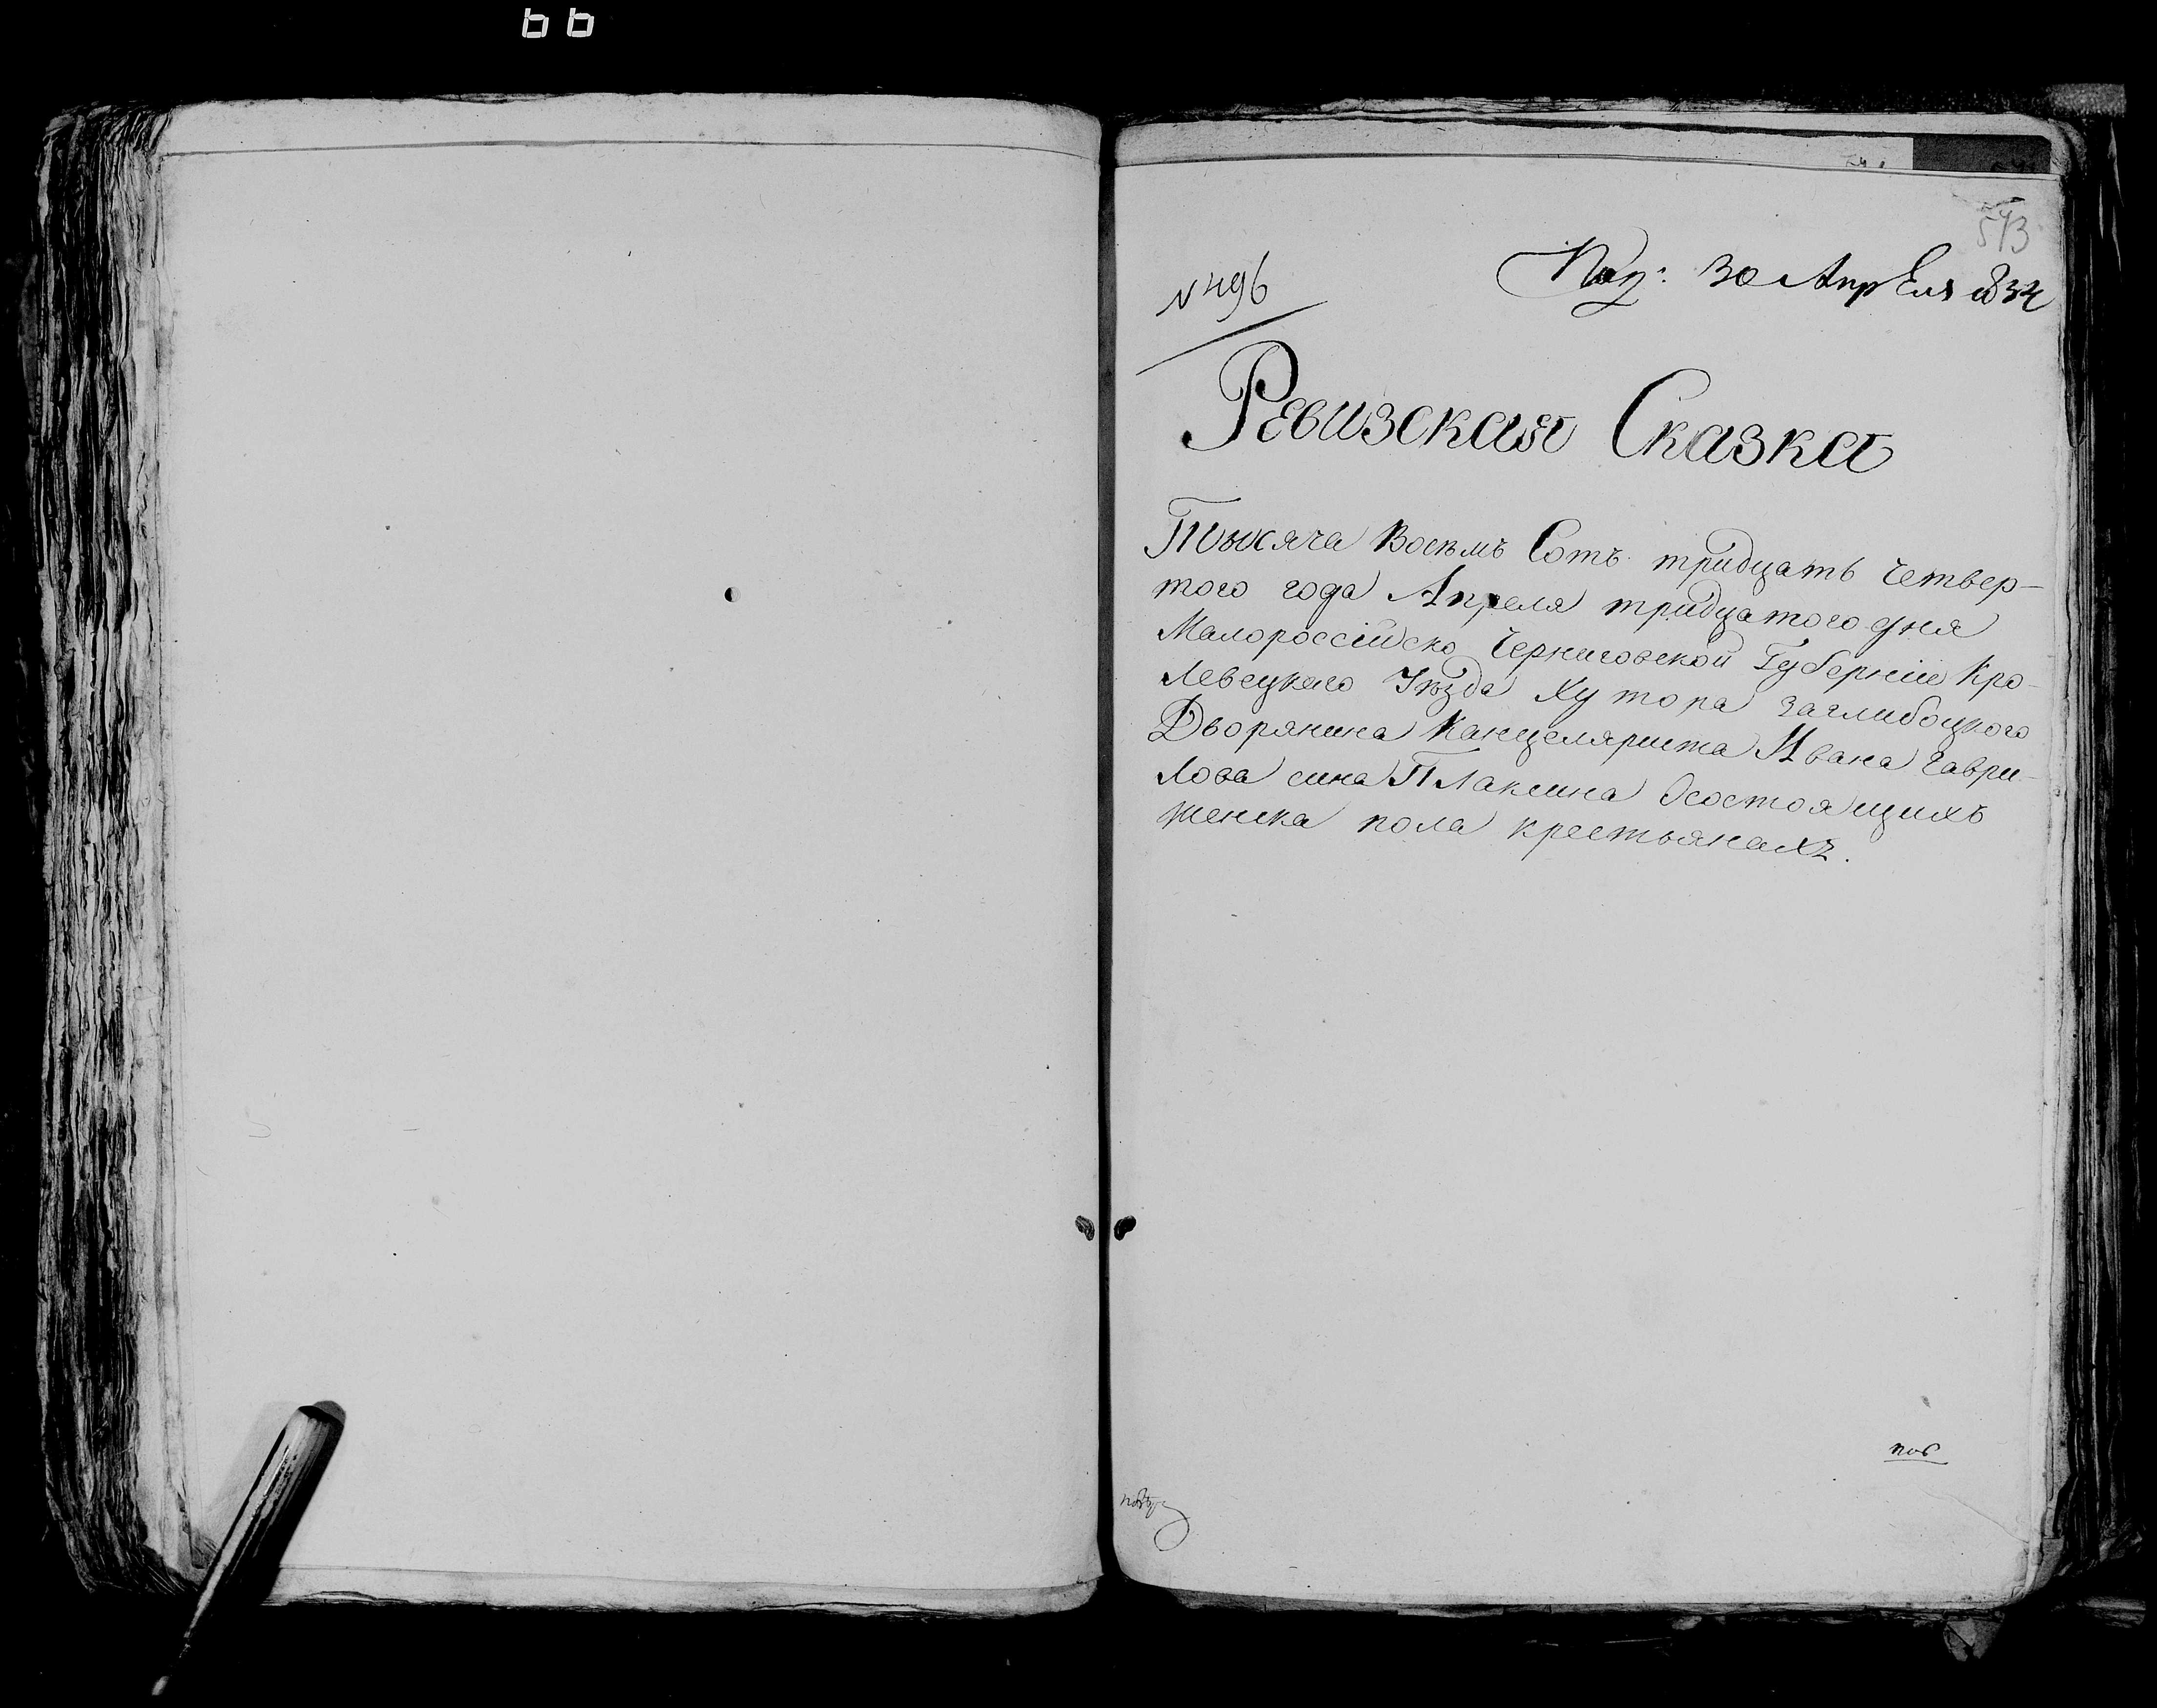 66
593
№ 496
Пол: 30 Апреля 1834
Ревизская Сказка
Тысяча Восемъ Сотъ тридцать четвер-
того года Апреля тридцатого дня
Малороссійско Черниговской Губерніи Кро-
левецкаго Уѣзда Хутора Заглибоцкого
Дворянина Канцеляриста Ивана Гаври-
лова сина Плаксина Осостоящихъ
женска пола крестьянахъ.